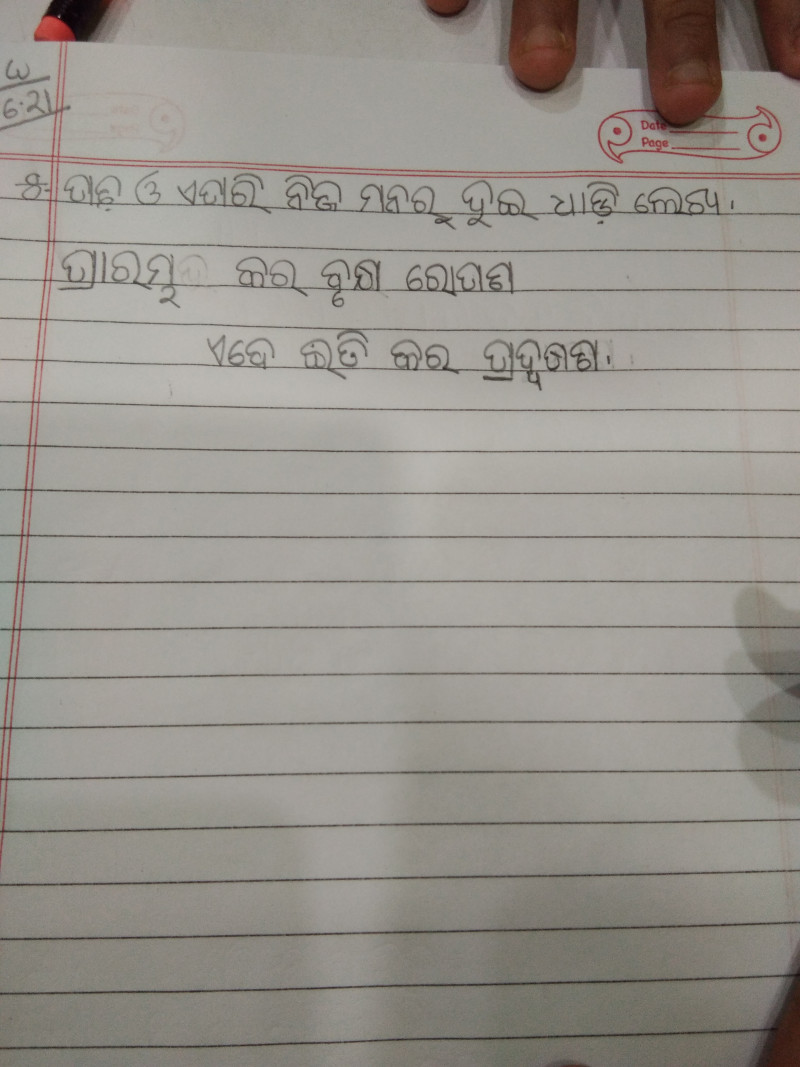 W
6.21
Date
Page
୫- ପାଢ଼ ଓ ଏପରି ନିଜ ମନରୁ ଦୁଇ ଧାଡ଼ି ଲେଖ.
ପ୍ରାରମ୍ଭ କର ବୃକ୍ଷ ରୋପଣ
ଏବେ ଇତି କର ପ୍ରଦୂଷଣ.